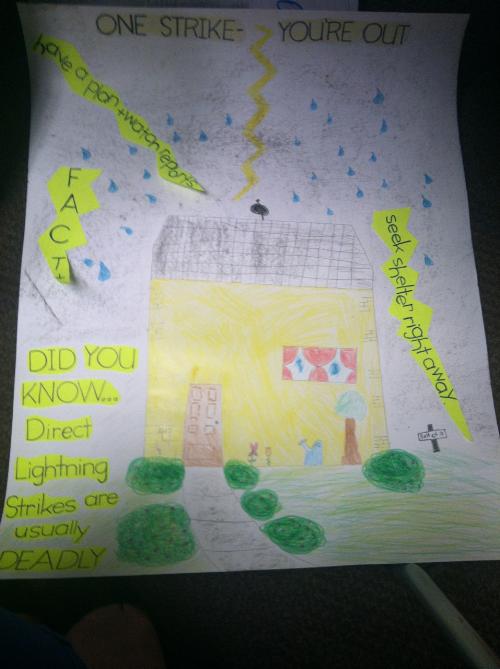 ONE STRIKE- YOU'RE OUT
have a plan + watch reports
FACT:
seek shelter right away
DID YOU
KNOW...
Direct
Lightning
Strikes are
usually
DEADLY